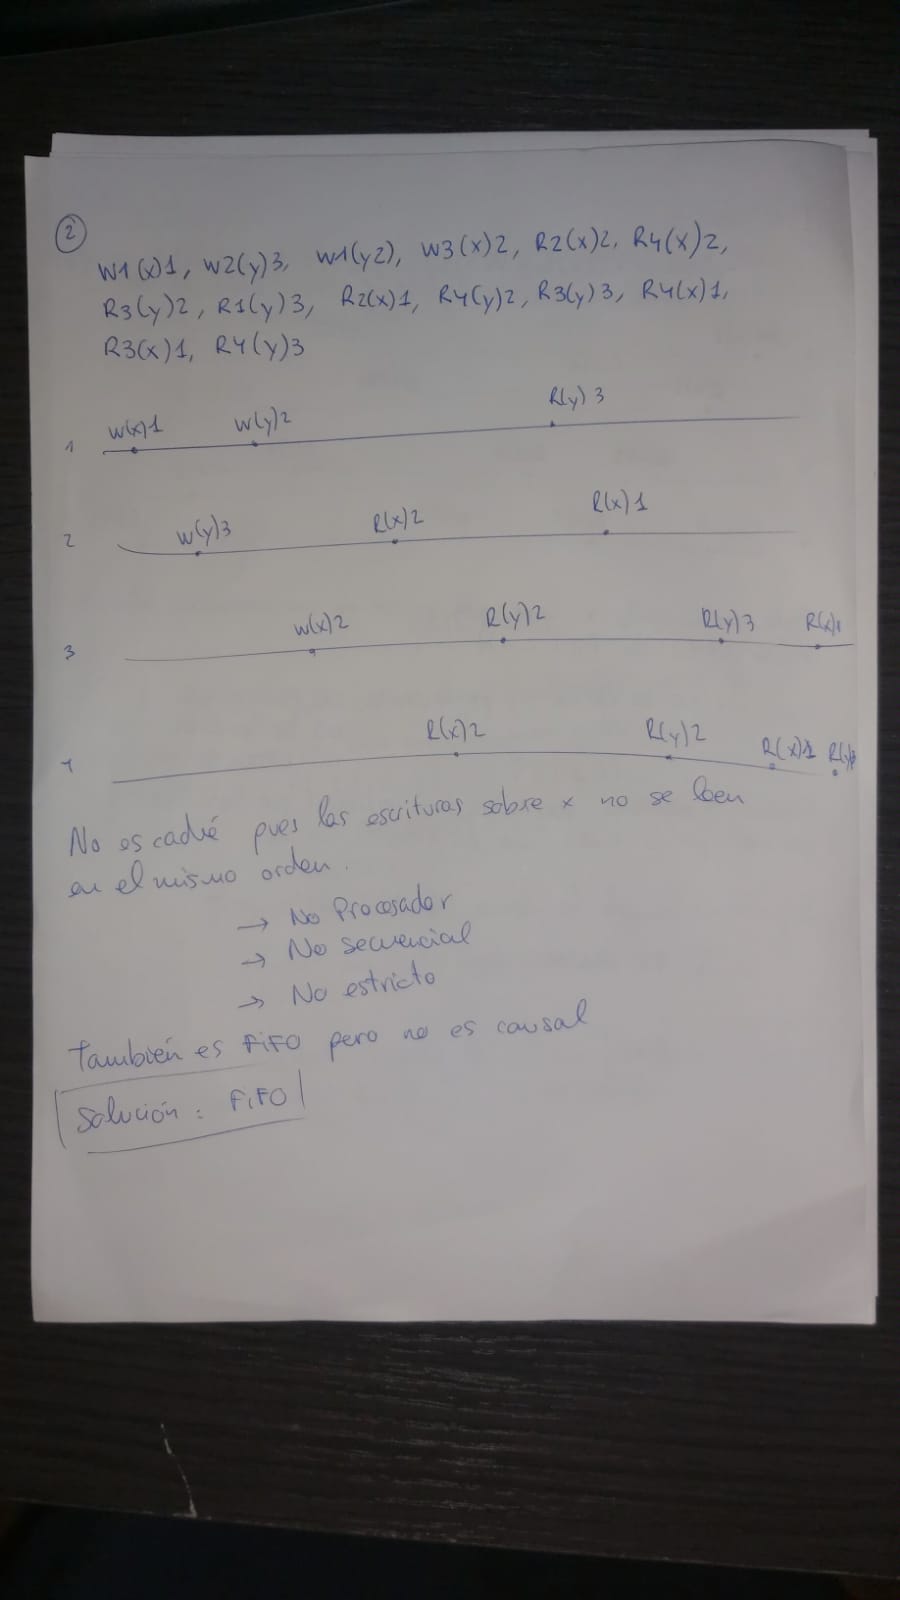 2
W1(x)1, W2(y)3, W1(y2), W3(x)2, R2(x)2, R4(x)2,
R3(y)2, R1(y)3, R2(x)1, R4(y)2, R3(y)3, R4(x)1,
R3(x)1, R4(y)3
W(x)1 W(y)2 R(y)3
1
W(y)3 R(x)2 R(x)1
2
W(x)2 R(y)2 R(y)3 R(x)1
3
R(x)2 R(y)2 R(x)1 R(y)3
4
No es caché pues las escrituras sobre x no se leen
en el mismo orden.
→ No Procesador
→ No secuencial
→ No estricto
También es FIFO pero no es causal
Solución: FIFO